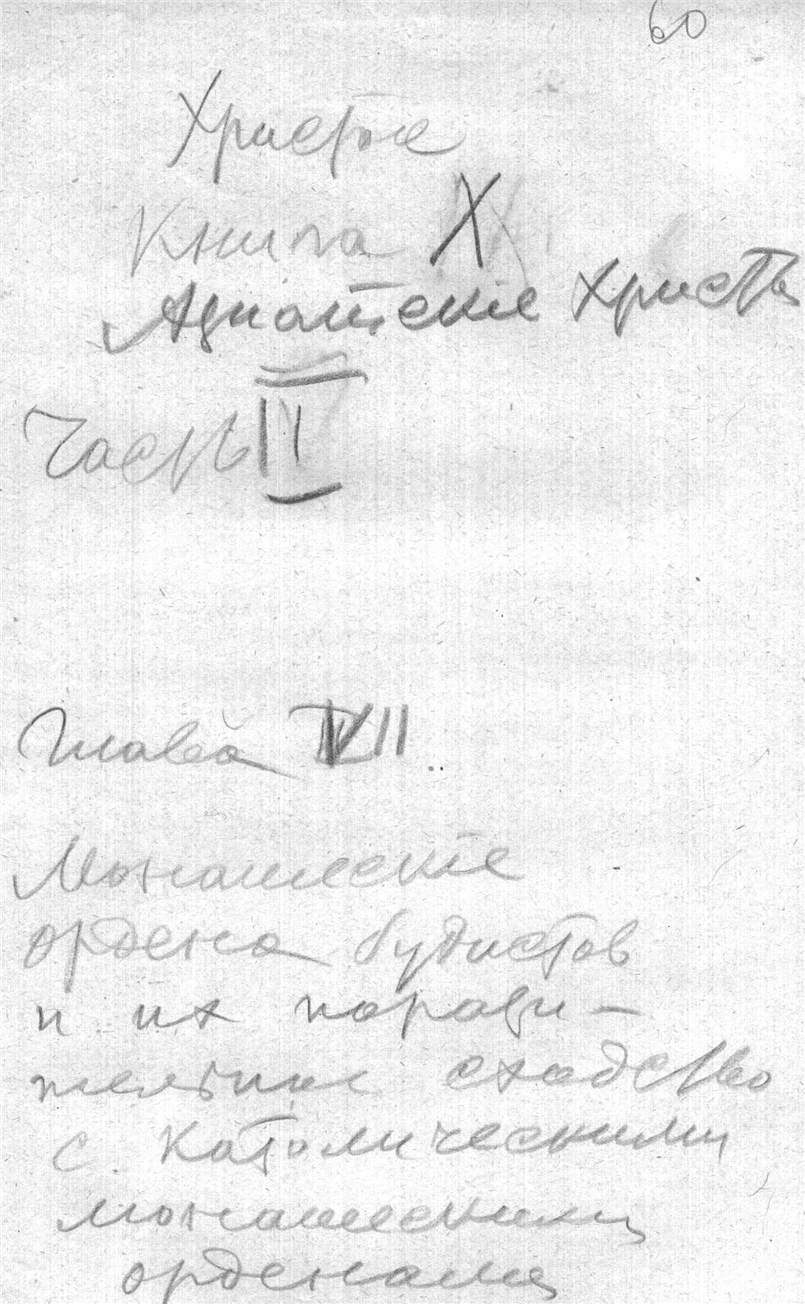 60
Христос
Книга X
Азиатскіе Христы
Часть II
Глава VII
Монашескіе
ордена будистов
и их порази-
тельное сходство
с католическими
монашескими
орденами